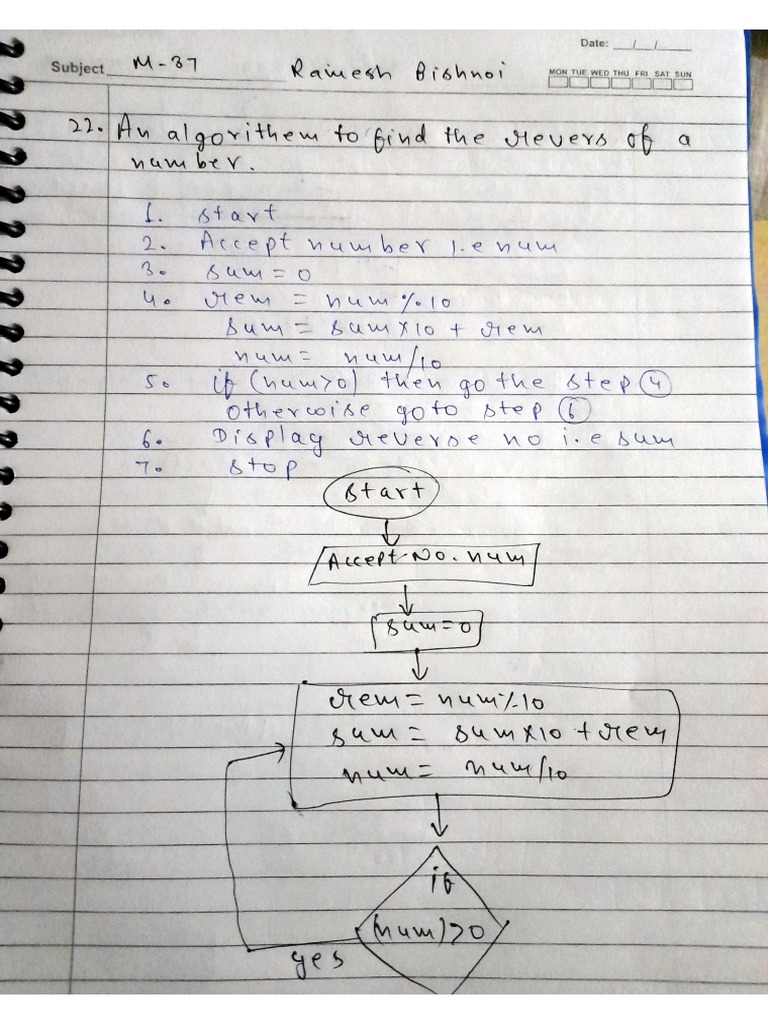 Date: __/__/__
Subject M-37 Ramesh Bishnoi
MON TUE WED THU FRI SAT SUN
22. An algorithem to find the revers of a
number.
1. Start
2. Accept number i.e num
3. sum = 0
4. rem = num % 10
sum = sum x 10 + rem
num = num/10
5. if (num>0) then go the step 4
otherwise go to step 6
6. Display reverse no i.e sum
7. stop
Start
Accept No. num
sum = 0
rem = num % 10
sum = sum x 10 + rem
num = num/10
if
(num)>0
yes